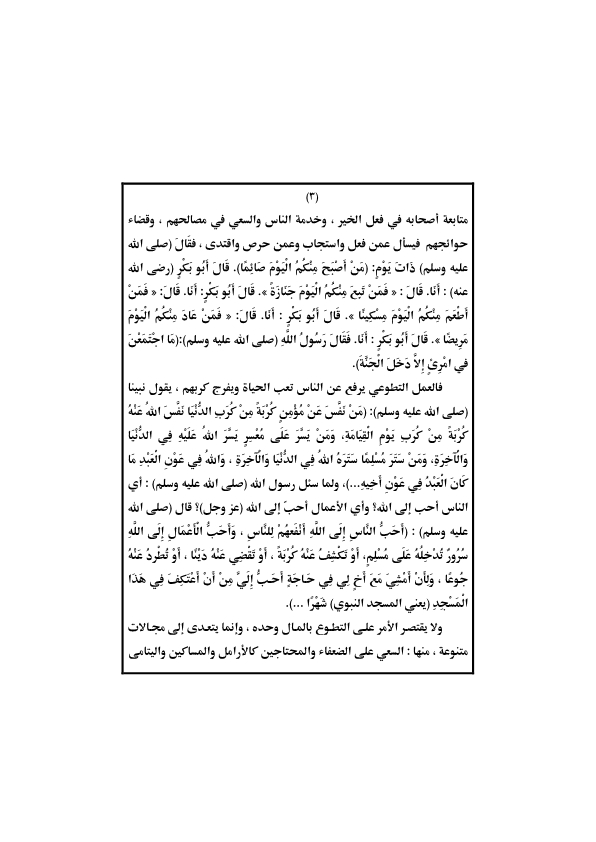 (٣)
متابعة أصحابه في فعل الخير ، وخدمة الناس والسعي في مصالحهم ، وقضاء
حوائجهم فيسأل عمن فعل واستجاب وعمن حرص واقتدى ، فقَالَ (صلى الله
عليه وسلم) ذَاتَ يَوْمٍ: (مَنْ أَصْبَحَ مِنْكُمُ الْيَوْمَ صَائِمًا). قَالَ أَبُو بَكْرٍ (رضى الله
عنه) : أَنَا. قَالَ : « فَمَنْ تَبِعَ مِنْكُمُ الْيَوْمَ جَنَازَةً ». قَالَ أَبُو بَكْرٍ: أَنَا. قَالَ: « فَمَنْ
أَطْعَمَ مِنْكُمُ الْيَوْمَ مِسْكِينًا ». قَالَ أَبُو بَكْرٍ : أَنَا. قَالَ: « فَمَنْ عَادَ مِنْكُمُ الْيَوْمَ
مَرِيضًا ». قَالَ أَبُو بَكْرٍ : أَنَا. فَقَالَ رَسُولُ اللَّهِ (صلى الله عليه وسلم):(مَا اجْتَمَعْنَ
في امْرِئٍ إِلاَّ دَخَلَ الْجَنَّةَ).
فالعمل التطوعي يرفع عن الناس تعب الحياة ويفرج كربهم ، يقول نبينا
(صلى الله عليه وسلم): (مَنْ نَفَّسَ عَنْ مُؤْمِنٍ كُرْبَةً مِنْ كُرَبِ الدُّنْيَا نَفَّسَ اللهُ عَنْهُ
كُرْبَةً مِنْ كُرَبِ يَوْمِ الْقِيَامَةِ، وَمَنْ يَسَّرَ عَلَى مُعْسِرٍ يَسَّرَ اللهُ عَلَيْهِ فِي الدُّنْيَا
وَالْآخِرَةِ، وَمَنْ سَتَرَ مُسْلِمًا سَتَرَهُ اللهُ فِي الدُّنْيَا وَالْآخِرَةِ ، وَاللهُ فِي عَوْنِ الْعَبْدِ مَا
كَانَ الْعَبْدُ فِي عَوْنِ أَخِيهِ...)، ولما سئل رسول الله (صلى الله عليه وسلم) : أي
الناس أحب إلى الله؟ وأي الأعمال أحبّ إلى الله (عز وجل)؟ قال (صلى الله
عليه وسلم) : (أَحَبُّ النَّاسِ إِلَى اللَّهِ أَنْفَعُهُمْ لِلنَّاسِ ، وَأَحَبُّ الْأَعْمَالِ إِلَى اللَّهِ
سُرُورٌ تُدْخِلُهُ عَلَى مُسْلِمٍ، أَوْ تَكْشِفُ عَنْهُ كُرْبَةً ، أَوْ تَقْضِي عَنْهُ دَيْنًا ، أَوْ تُطْرِدُ عَنْهُ
جُوعًا ، وَلَأَنْ أَمْشِيَ مَعَ أَخٍ لِي فِي حَاجَةٍ أَحَبُّ إِلَيَّ مِنْ أَنْ أَعْتَكِفَ فِي هَذَا
الْمَسْجِدِ (يعني المسجد النبوي) شَهْرًا ...).
ولا يقتصر الأمر على التطوع بالمال وحده ، وإنما يتعدى إلى مجالات
متنوعة ، منها : السعي على الضعفاء والمحتاجين كالأرامل والمساكين واليتامى